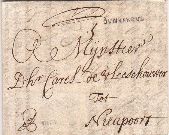 DUNKERKE
A Mynsieer
Dhr Carel de Vleeschouwer
Tot
Nieupoort